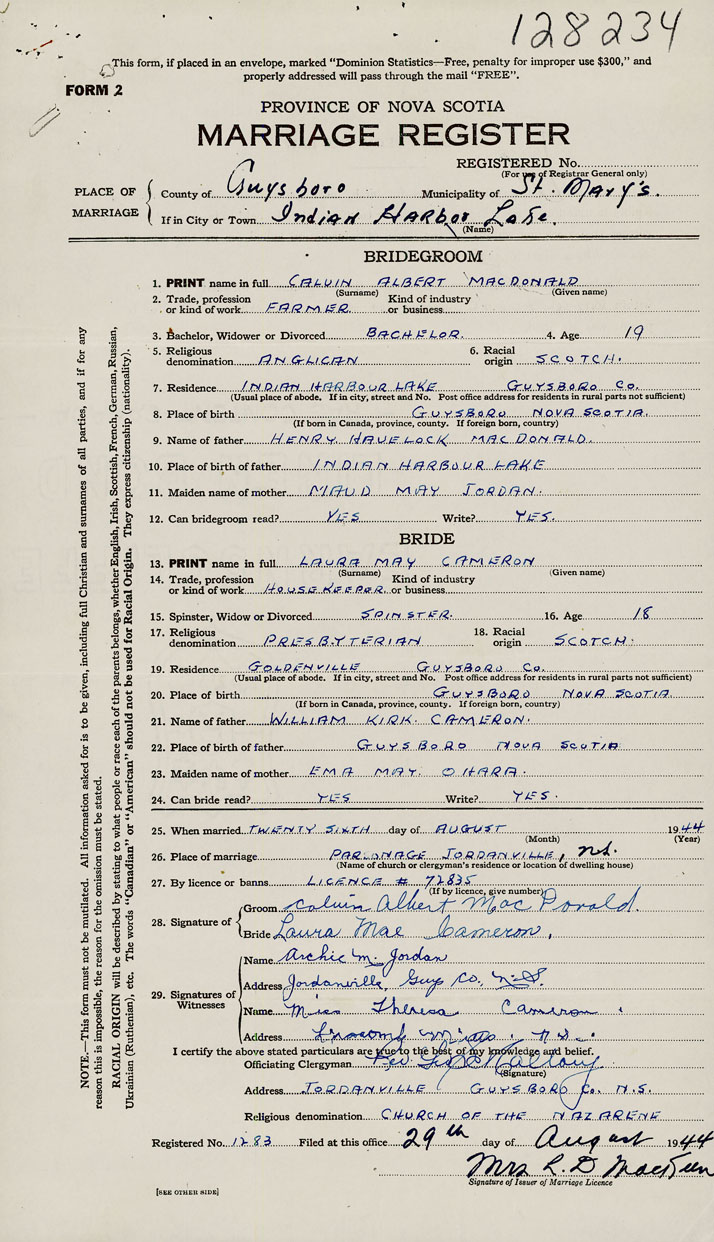 128234
This form, if placed in an envelope, marked "Dominion Statistics—Free, penalty for improper use $300," and
properly addressed will pass through the mail "FREE".
FORM 2
PROVINCE OF NOVA SCOTIA
MARRIAGE REGISTER
REGISTERED No.
(For use of Registrar General only)
PLACE OF MARRIAGE
County of Guysboro Municipality of St. Mary's.
If in City or Town Indian Harbor Lake.
(Name)
BRIDEGROOM
1. PRINT name in full CALVIN ALBERT MACDONALD
(Surname) (Given name)
2. Trade, profession or kind of work FARMER Kind of industry or business
3. Bachelor, Widower or Divorced BACHELOR. 4. Age 19
5. Religious denomination ANGLICAN 6. Racial origin SCOTCH.
7. Residence INDIAN HARBOUR LAKE GUYSBORO CO.
(Usual place of abode. If in city, street and No. Post office address for residents in rural parts not sufficient)
8. Place of birth GUYSBORO NOVA SCOTIA.
(If born in Canada, province, county. If foreign born, country)
9. Name of father HENRY HAVELOCK MACDONALD.
10. Place of birth of father INDIAN HARBOUR LAKE
11. Maiden name of mother MAUD MAY JORDAN.
12. Can bridegroom read? YES Write? YES.
BRIDE
13. PRINT name in full LAURA MAY CAMERON
(Surname) (Given name)
14. Trade, profession or kind of work HOUSEKEEPER Kind of industry or business
15. Spinster, Widow or Divorced SPINSTER. 16. Age 18
17. Religious denomination PRESBYTERIAN 18. Racial origin SCOTCH.
19. Residence GOLDENVILLE GUYSBORO CO.
(Usual place of abode. If in city, street and No. Post office address for residents in rural parts not sufficient)
20. Place of birth GUYSBORO NOVA SCOTIA
(If born in Canada, province, county. If foreign born, country)
21. Name of father WILLIAM KIRK CAMERON.
22. Place of birth of father GUYSBORO NOVA SCOTIA
23. Maiden name of mother EMA MAY OHARA.
24. Can bride read? YES Write? YES.
25. When married TWENTY SIXTH day of AUGUST 1944
(Month) (Year)
26. Place of marriage PARSONAGE JORDANVILLE, N.S.
(Name of church or clergyman's residence or location of dwelling house)
27. By licence or banns LICENCE # 72835
(If by licence, give number)
28. Signature of
Groom Calvin Albert MacDonald.
Bride Laura Mae Cameron,
29. Signatures of Witnesses
Name Archie M. Jordan
Address Jordanville, Guys Co., N.S.
Name Miss Theresa Cameron
Address Liscomb Mills. N.S.
I certify the above stated particulars are true to the best of my knowledge and belief.
Officiating Clergyman Rev Mallory
(Signature)
Address JORDANVILLE GUYSBORO Co. N.S.
Religious denomination CHURCH OF THE NAZARENE
Registered No. 1283 Filed at this office 29th day of August 1944
Mrs L. D MacKeen
Signature of Issuer of Marriage Licence
[SEE OTHER SIDE]
NOTE.—This form must not be mutilated. All information asked for is to be given, including full Christian and surnames of all parties, and if for any
reason this is impossible, the reason for the omission must be stated.
RACIAL ORIGIN will be described by stating to what people or race each of the parents belongs, whether English, Irish, Scottish, French, German, Russian,
Ukrainian (Ruthenian), etc. The words "Canadian" or "American" should not be used for Racial Origin. They express citizenship (nationality).